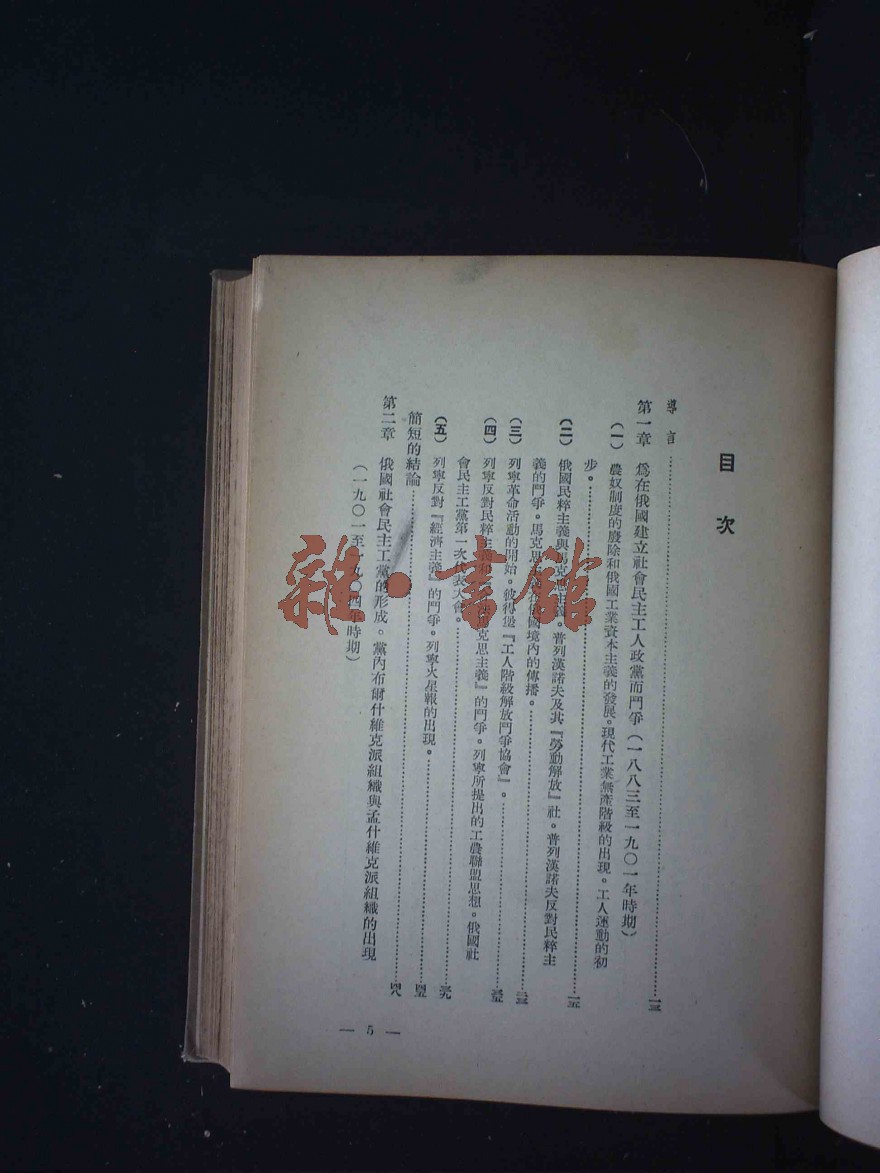 目次
導言……一三
第一章 爲在俄國建立社會民主工人政黨而鬥爭（一八八三至一九〇一年時期）
（一） 農奴制度的廢除和俄國工業資本主義的發展。現代工業無產階級的出現。工人運動的初
步。……一五
（二） 俄國民粹主義與馬克思主義。普列漢諾夫及其『勞動解放』社。普列漢諾夫反對民粹主
義的鬥爭。馬克思主義在俄國境內的傳播。……二三
（三） 列寧革命活動的開始。彼得堡『工人階級解放鬥爭協會』。……
（四） 列寧反對民粹主義和『思主義』的鬥爭。列寧所提出的工農聯盟思想。俄國社
會民主工黨第一次代表大會。……
（五） 列寧反對『經濟主義』的鬥爭。列寧火星報的出現。……
簡短的結論……四八
第二章 俄國社會民主工黨的形成。黨內布爾什維克派組織與孟什維克派組織的出現
（一九〇一至一九〇四年時期）
— 5 —
雜·書館